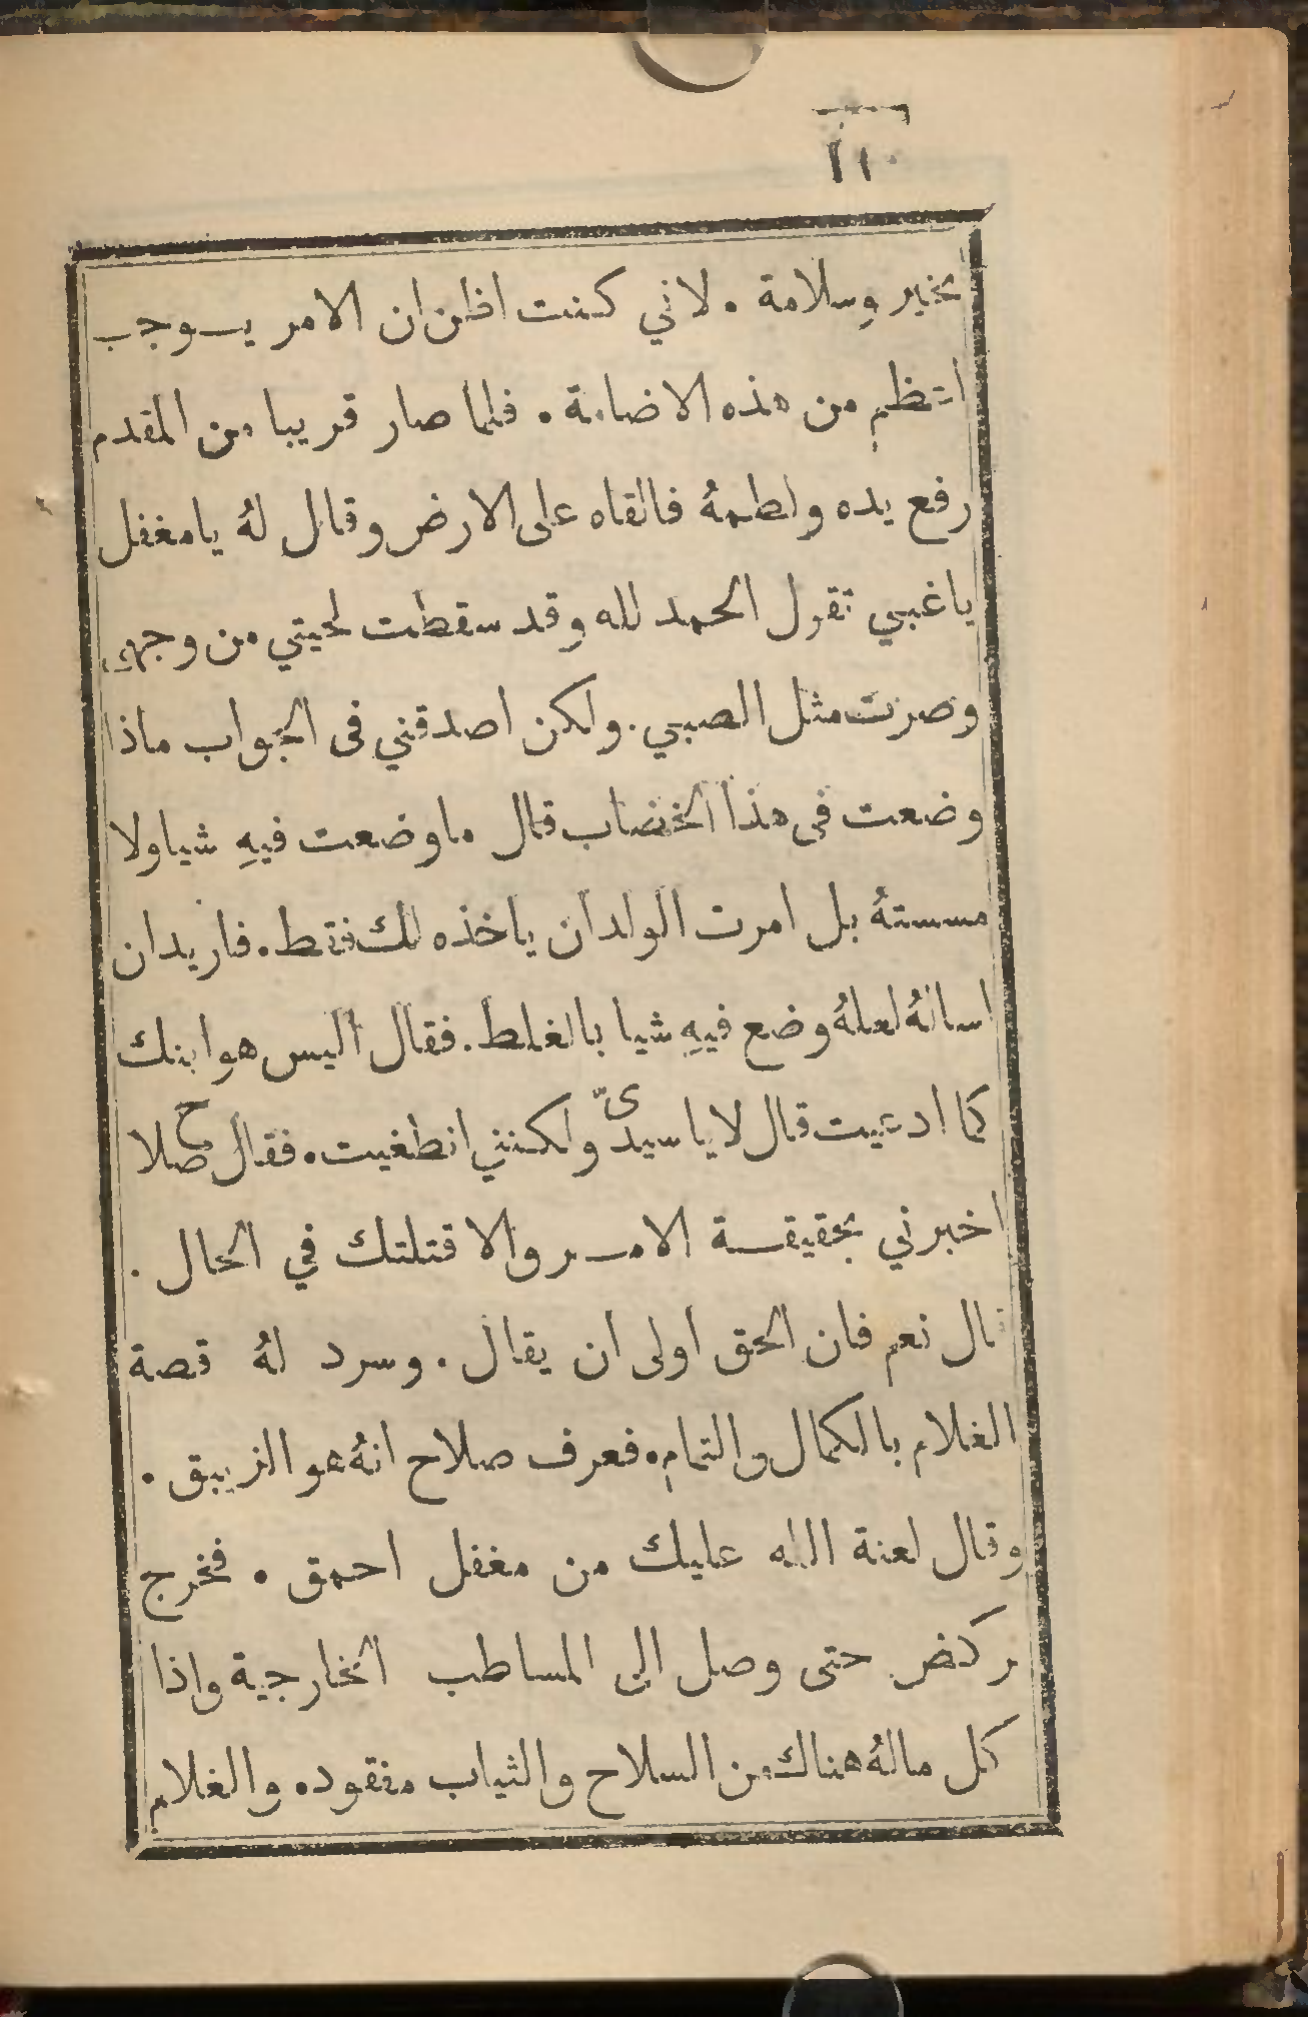 ١١٠
بخير وسلامة . لاني كنت اظن ان الامر يستوجب
اعظم من هذه الاضامة . فلما صار قريبا من المقدم
رفع يده ولطمهُ فالقاه على الارض وقال لهُ يا مغفل
يا غبي تقول الحمد لله وقد سقطت لحيتي من وجهي
وصرت مثل الصبي . ولكن اصدقني فى الجواب ماذا
وضعت فى هذا الخضاب قال ما وضعت فيهِ شيا ولا
مسستهُ بل امرت الولد ان ياخذه لك فقط . فاريد ان
اسالهُ لعلهُ وضع فيهِ شيا بالغلط . فقال اليس هو ابنك
كما ادعيت قال لا يا سيدىّ ولكنني انطغيت . فقال صلاح
اخبرني بحقيقة الامر والا قتلتك في الحال .
قال نعم فان الحق اولى ان يقال . وسرد لهُ قصة
الغلام بالكمال والتمام . فعرف صلاح انهُ هو الزيبق .
وقال لعنة الله عليك من مغفل احمق . فخرج
يركض حتى وصل الى المساطب الخارجية واذا
كل مالهُ هناك من السلاح والثياب مفقوده والغلام